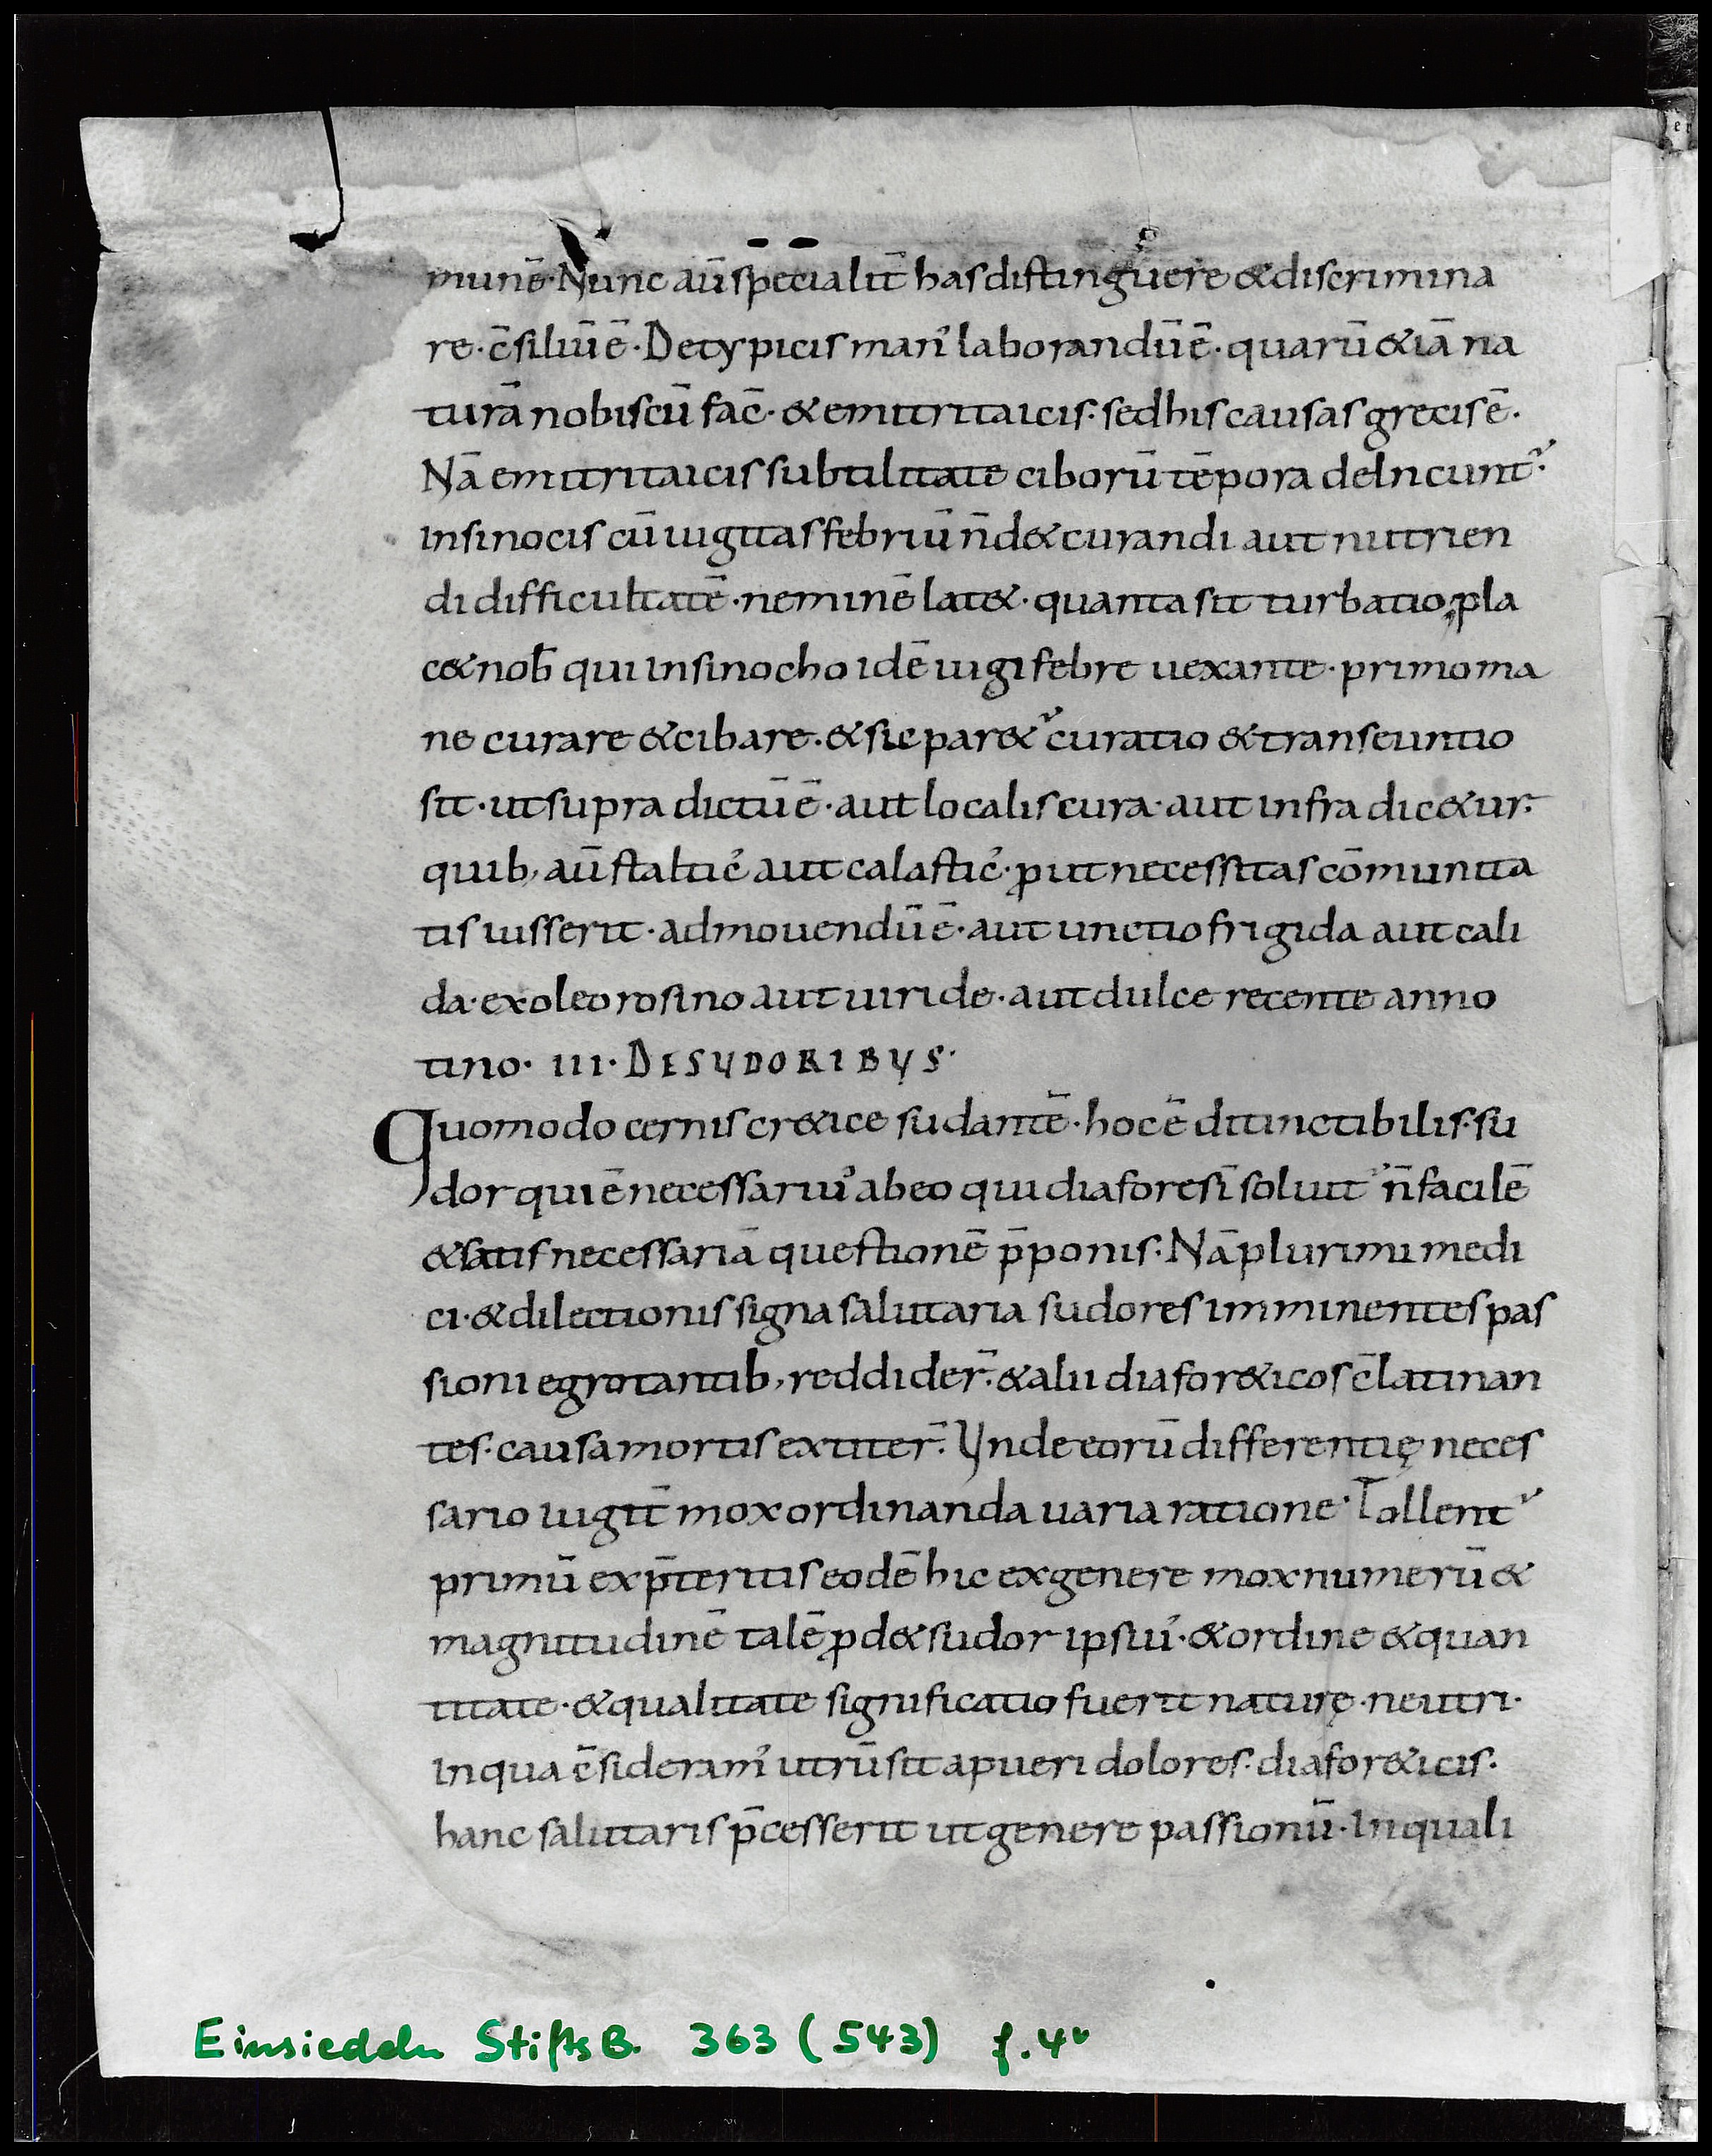 munē· Nunc aū specialit̄ has distinguere & discrimina
re· c̄siliū ē· De typicis man᾽ laborandū ē· quarū & iā na
turā nobiscū fac̄· & emitritaicis· sed his causas grecis ē·
Nā emitritaicis subtilitate ciborū tēpora delncunt᾽·
In sinocis cū iugitas febriū n̄ d& curandi aut nutrien
di difficultatē· neminē lat&· quanta sit turbatio; pla
c& nob̄ qui in sinocho idē iugi febre uexante· primo ma
ne curare & cibare· & sic par&᾽ curatio & transeuntio
sit· ut supra dictū ē· aut localis cura· aut infra dic&ur·
quib, aū staltic᾽ aut calastic᾽· ꝓ ut necessitas cōmunita
tis iusserit· admouendū ē· aut unctio frigida aut cali
da· ex oleo rosino aut uiride· aut dulce recente anno
tino· III· DE SUDORIBUS·
Quomodo cernis cr&ice sudantē· hoc ē ditinctibilis· su
dor qui ē necessariu᾽ ab eo qui diaforesī soluit᾽ n̄ facilē
& satis necessariā questionē p̄ponis· Nā plurimi medi
ci· & dilectionis signa salutaria sudores imminentes pas
sioni egrotantib, reddider̄· & alii diafor&icos c̄latinan
tes· causa mortis extiter̄· Unde eorū differentię neces
sario iugit̄ mox ordinanda uaria ratione· Tollent᾽
primū ex p̄teritis eodē hic ex genere mox numerū &
magnitudinē talē ꝓd& sudor ipsiu᾽· & ordine & quan
titate· & qualitate significatio fuerit naturę· neutri·
In qua c̄sideram᾽ utrū sit apueri dolores· diafor&icis·
hanc salutaris p̄cesserit ut genere passionū· In quali
Einsiedeln StiftsB. 363 (543) f. 4v